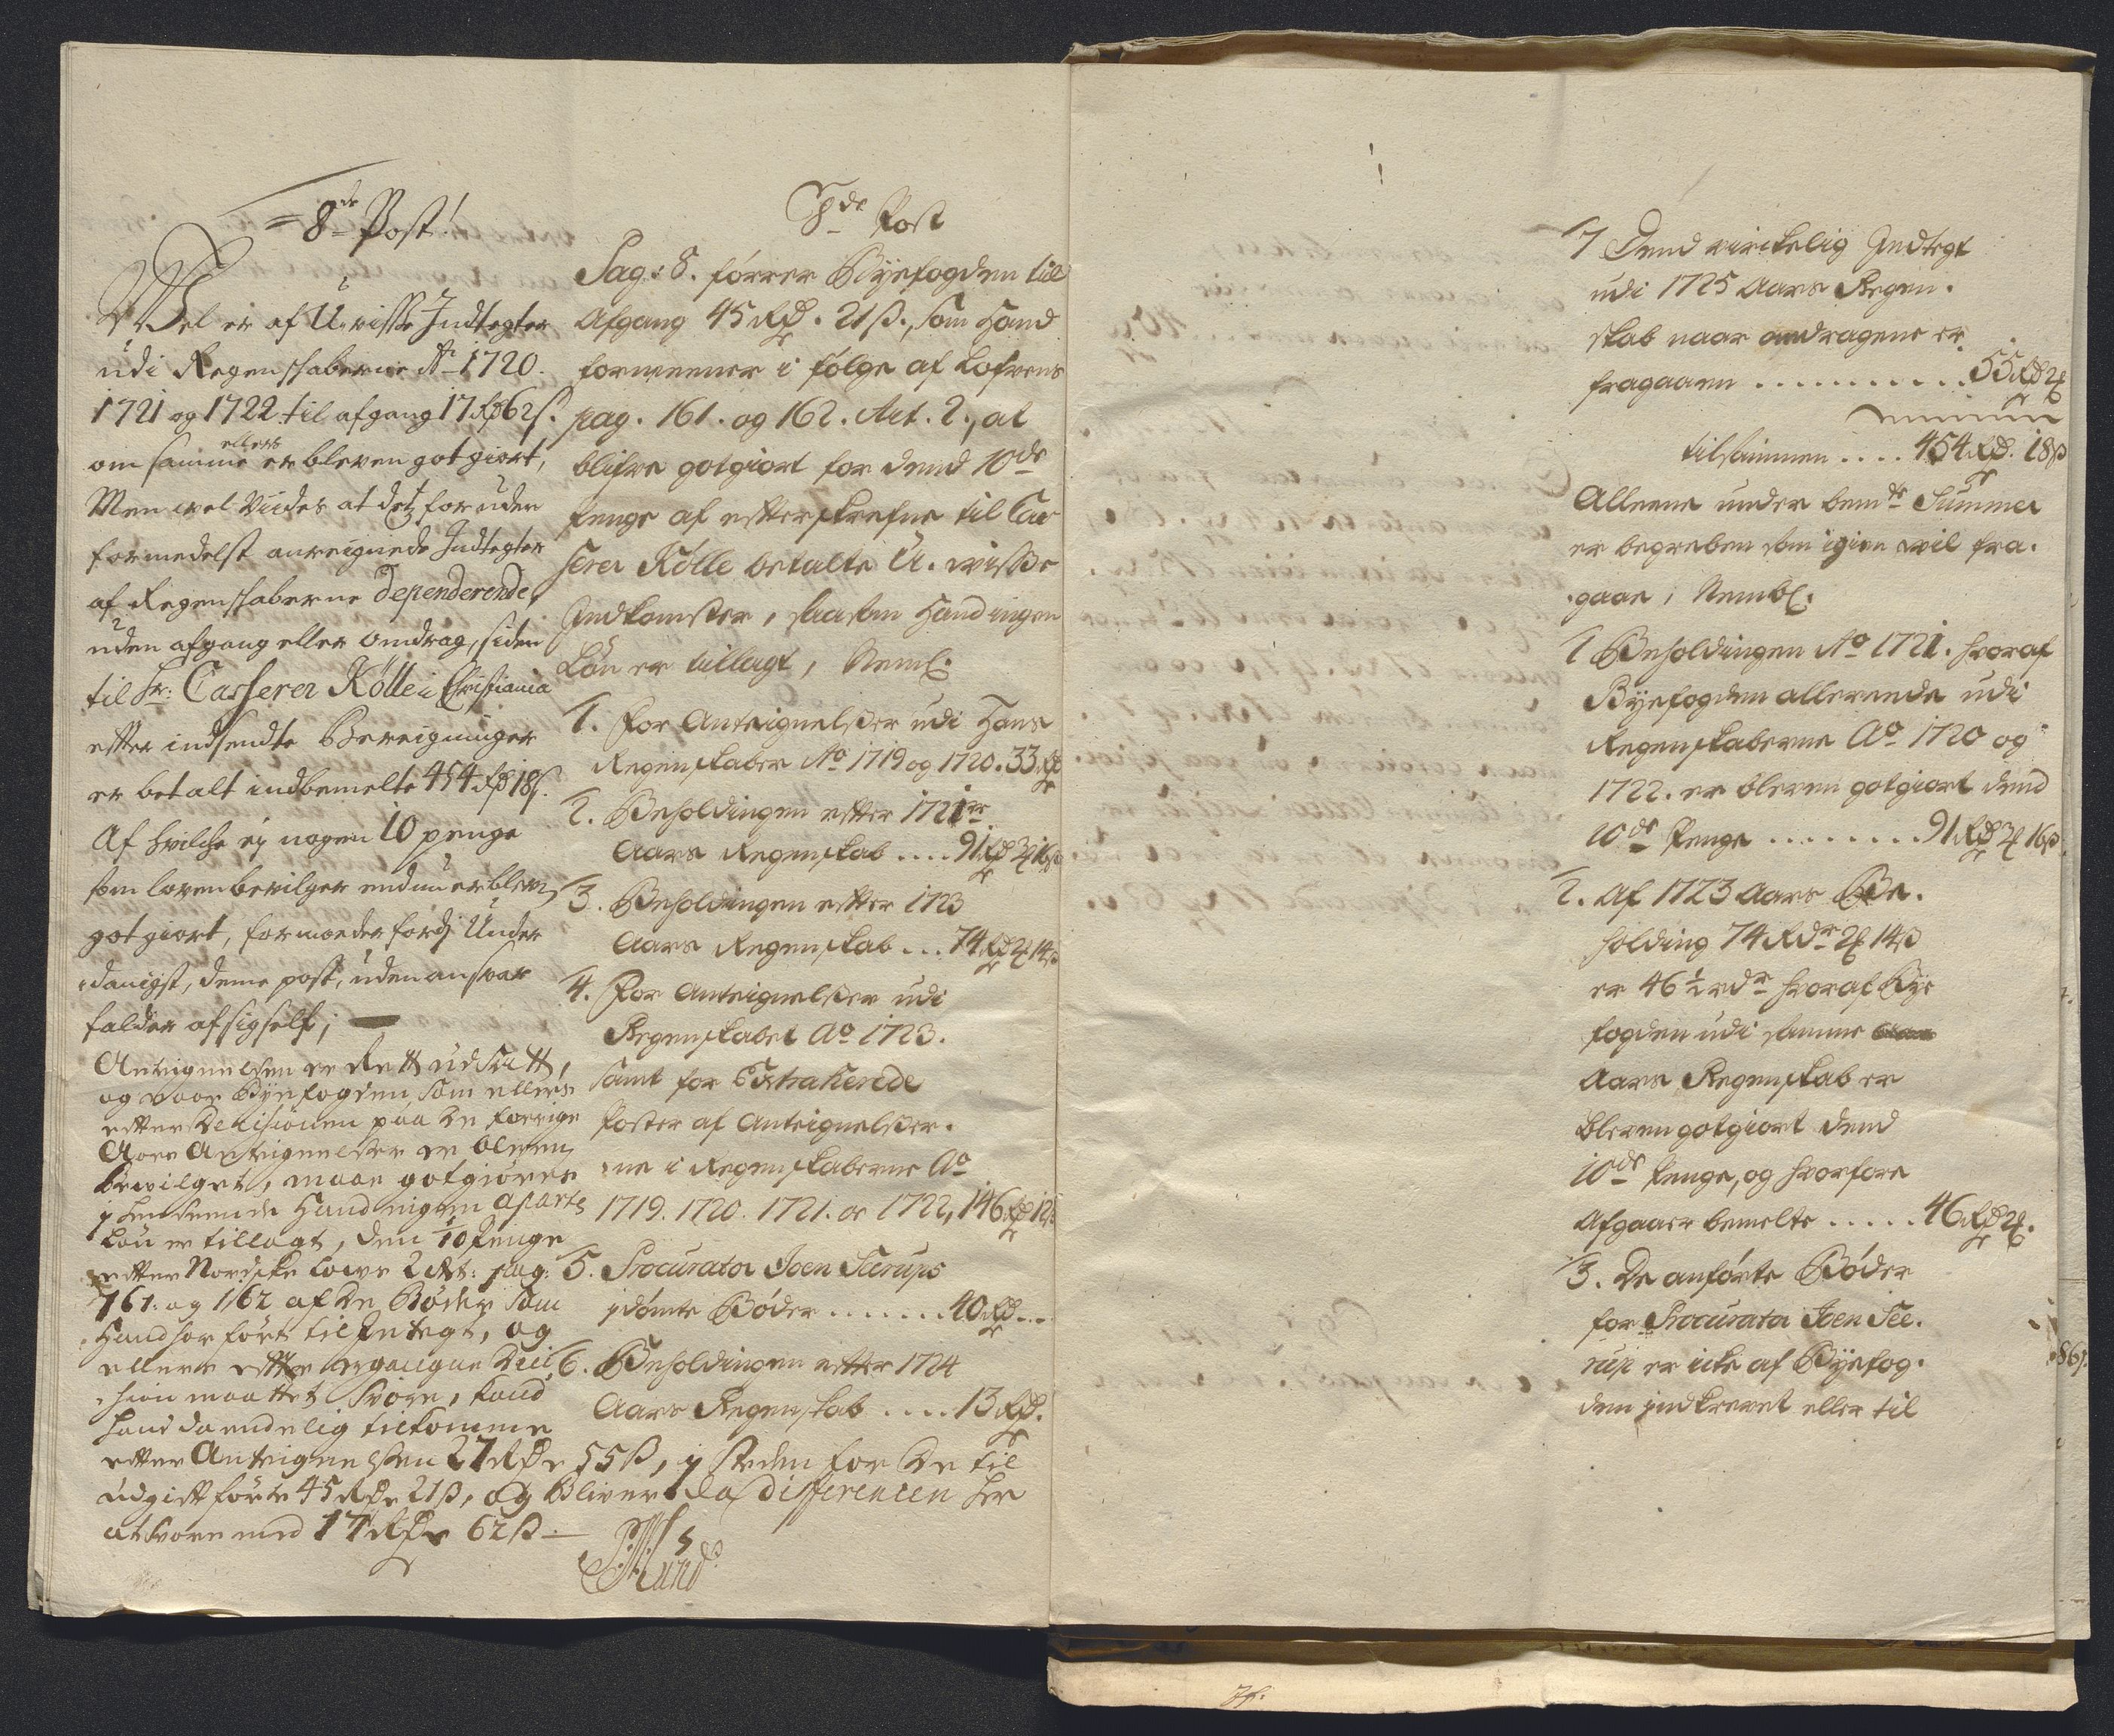 8de Post!
Wel er af U-visse Indtegter
udi Regenskaberne Ao 1720.
1721 og 1722 til afgang 17 Rdr 62s.
om samme ellers er bleven got giort,
Men wel viides at det foruden
formedelst anteignede Indtegter
af Regenskaberne Dependerende,
uden afgang eller omdrag, siden
til Hr: Casserer Kölle i Christiania
efter indsendte Bereigninger
er betalt indbemelte 454 Rdr 18s.
Af hvilche ej nogen 10 penge
som loven bevilger endnu er bleven
got giort, formoeder fordj Under
danigst, denne post, uden ansvar
falder af sig self;
Anteignelsen er Rett udsatt,
og naar Byefogden som ellers
efter Decisionen paa de forrige
Aars Antegnelser er bleven
bevilget, maae godtgiøres
i henseende Hand ingen aparte
Løn er tillagt, den 1/10 Penge
efter Norske Lows 2 Art: pag:
161. og 162 af de Bøder som
Hand har ført til Indtegt, og
ellers efter ergangne Deci
sion maattet svare, kand
Hand da endelig tilkomme
efter Antegnelsen 27 Rdr 55s, i steden for de til
udgift førte 45 Rdr 21s, og bliver da differencen her
at svare med 17 Rdr 62s
8de Post
Pag: 8. fører Byefogden til
Afgang 45 Rdr. 21s., som Hand
formeener i følge af Lofvens
pag. 161. og 162. Art. 2., at
blifve gotgiort for dend 10de
Penge af efterskrefne til Cas
serer Kölle betalte U. wisse
Indkomster, saasom Hand ingen
Løn er tillagt, Neml:
1. for Anteignelser udi Hans
Regenskaber Ao 1719 og 1720. 33 Rdr
2. Beholdingen efter 1721de
Aars Regenskab .... 91 Rdr 3 16s
3. Beholdingen efter 1723
Aars Regenskab ... 74 Rdr 2 14s
4. For Anteignelser udi
Regenskabet Ao 1723.
samt for Extraherede
Poster af Anteignelser-
ne i Regenskaberne Ao
1719. 1720. 1721. oc 1722, 146 Rdr 12s
5. Procurator Joen Seerups
idømte Bøder ....... 40 Rdr ...
6. Beholdingen efter 1724
Aars Regenskab .... 13 Rdr.
7 Dend virckelig Indtegt
udi 1725 Aars Regen-
skab naar omdragene er
fragaaen ........... 55 Rdr 2
tilsammen .... 454 Rdr. 18s
Alleene under bemte Summer
er begreben som igien wil fra-
gaae, Nembl:
1 Beholdingen Ao 1721. hvoraf
Byefogden allereede udi
Regenskaberne Ao 1720 og
1722. er bleven gotgiort dend
10de Penge ........ 91 Rdr 3 16s
2. af 1723 Aars Be-
holding 74 Rdr 2 14s
er 46 1/2 rdr hvoraf Bye
fogden udi samme
Aars Regenskab er
bleven gotgiort dend
10de Penge, og hvorfore
Afgaaer bemelte ..... 46 Rdr 2.
3. De anførte Bøder
for Procurator Joen See-
rup er icke af Byefog-
den indkrevet eller til